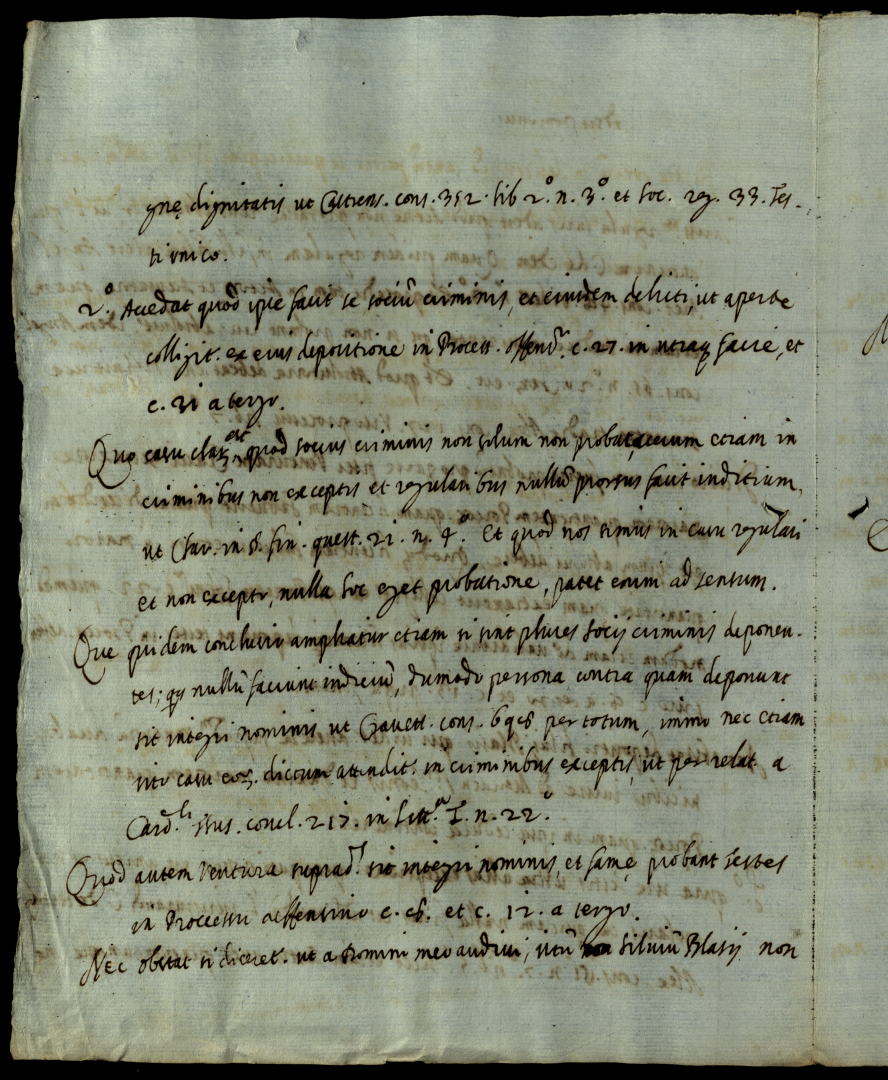 gnę dignitatis ut Castrens. cons. 352. lib 2.º n. 3.º et soc. reg. 33. Tes-
ti unico.
2.º Accedat quod ipse facit se sociũ criminis, et eiusdem delicti, ut aperte
colligit. ex eius depositione in Process. offens.º c. 27. in utraq facie, et
c. 31 a tergo.
Quo casu clar. est quod socius criminis non solum non probat, verum etiam in
criminibus non exceptis et regularibus nullũ prorsus facit inditium,
ut Clar. in §. fin. quest. 21. n. 4.º Et quod nos simus in casu regulari
et non excepto, nulla hoc eget probatione, patet enim ad sensum.
Que quidem conclusio ampliatur etiam si sint plures socij criminis deponen-
tes; qs nullũ faciunt indiciũ, dumodo persona contra quam deponunt
sit integri nominis ut Gravett. cons. per totum, immo nec etiam
isto casu eor. dictum attendit. in criminibus exceptis, ut per relat. a
Card.li Tus. concl. 217. in litt.ª T. n. 22.º
Quod autem Ventura suprad.s sit integri nominis, et famę probant testes
in Processu offensivo c. et c. 12. a tergo.
Nec obstat si diceret. ut a Domini meo audivi, istũ Silviũ Blasij non